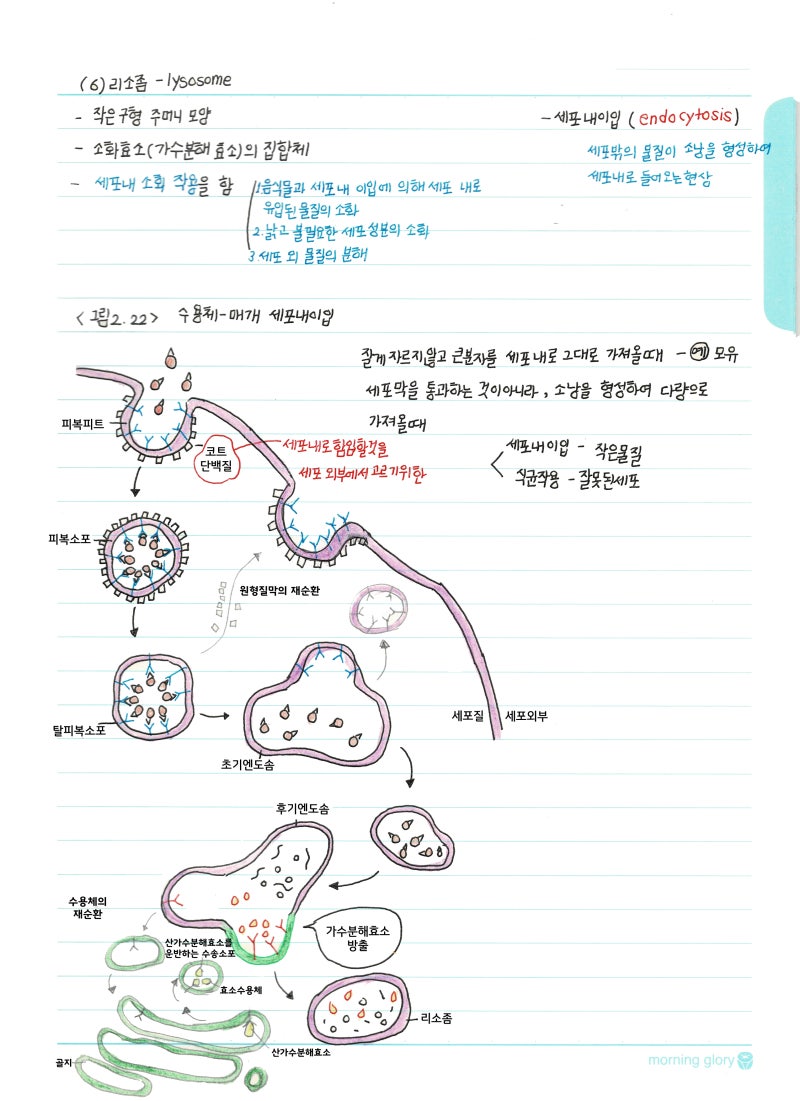 (6) 리소좀 - lysosome
- 작은 구형 주머니 모양
- 소화효소(가수분해 효소)의 집합체
- 세포내 소화 작용을 함
1. 음식물과 세포내 이입에 의해 세포 내로
유입된 물질의 소화
2. 낡고 불필요한 세포성분의 소화
3 세포 외 물질의 분해
- 세포내이입 (endocytosis)
세포밖의 물질이 소낭을 형성하여
세포내로 들어오는 현상
<그림2.22> 수용체-매개 세포내이입
잘게 자르지않고 큰분자를 세포내로 그대로 가져올때 - 예 모유
세포막을 통과하는 것이아니라, 소낭을 형성하여 다량으로
가져올때
세포내이입 - 작은물질
식균작용 - 잘못된세포
피복피트
코트
단백질
세포내로 함입할것을
세포 외부에서 고르기위한
피복소포
원형질막의 재순환
탈피복소포
초기엔도솜
세포질
세포외부
후기엔도솜
수용체의
재순환
가수분해효소
방출
산가수분해효소를
운반하는 수송소포
효소수용체
리소좀
산가수분해효소
골지
morning glory